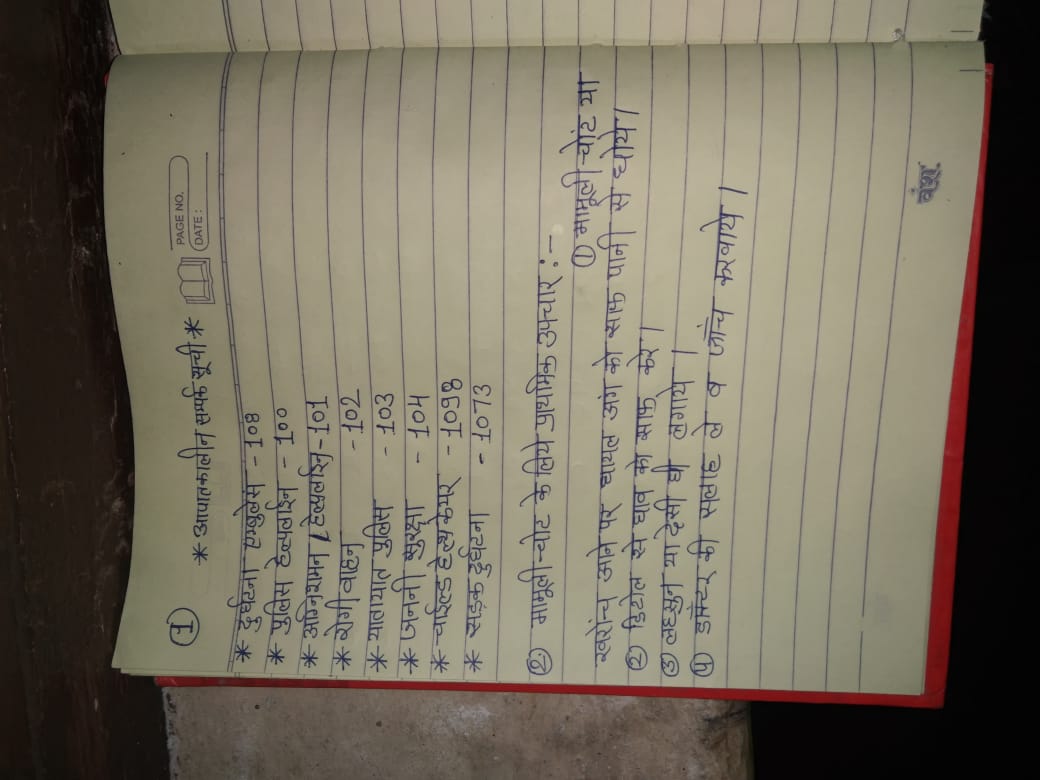 PAGE NO.
DATE :
① * आपातकालीन सम्पर्क सूची *
* दुर्घटना एम्बुलेंस - 108
* पुलिस हेल्पलाईन - 100
* अग्निशमन / हेल्पलाईन - 101
* रोगी वाहन - 102
* यातायात पुलिस - 103
* जननी सुरक्षा - 104
* चाईल्ड हेल्थ केयर - 1098
* सड़क दुर्घटना - 1073
② मामूली चोट के लिये प्राथमिक उपचार :-
① मामूली चोंट या
खरोंच आने पर घायल अंग को साफ पानी से धोये।
② डिटोल से घाव को साफ करे।
③ लहसुन या देसी घी लगाये।
④ डॉक्टर की सलाह ले व जाँच करवाये।
वंश